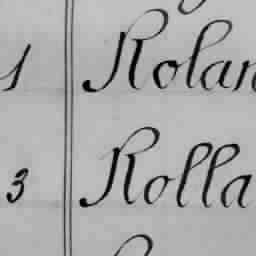 1 Rolan
3 Rolla